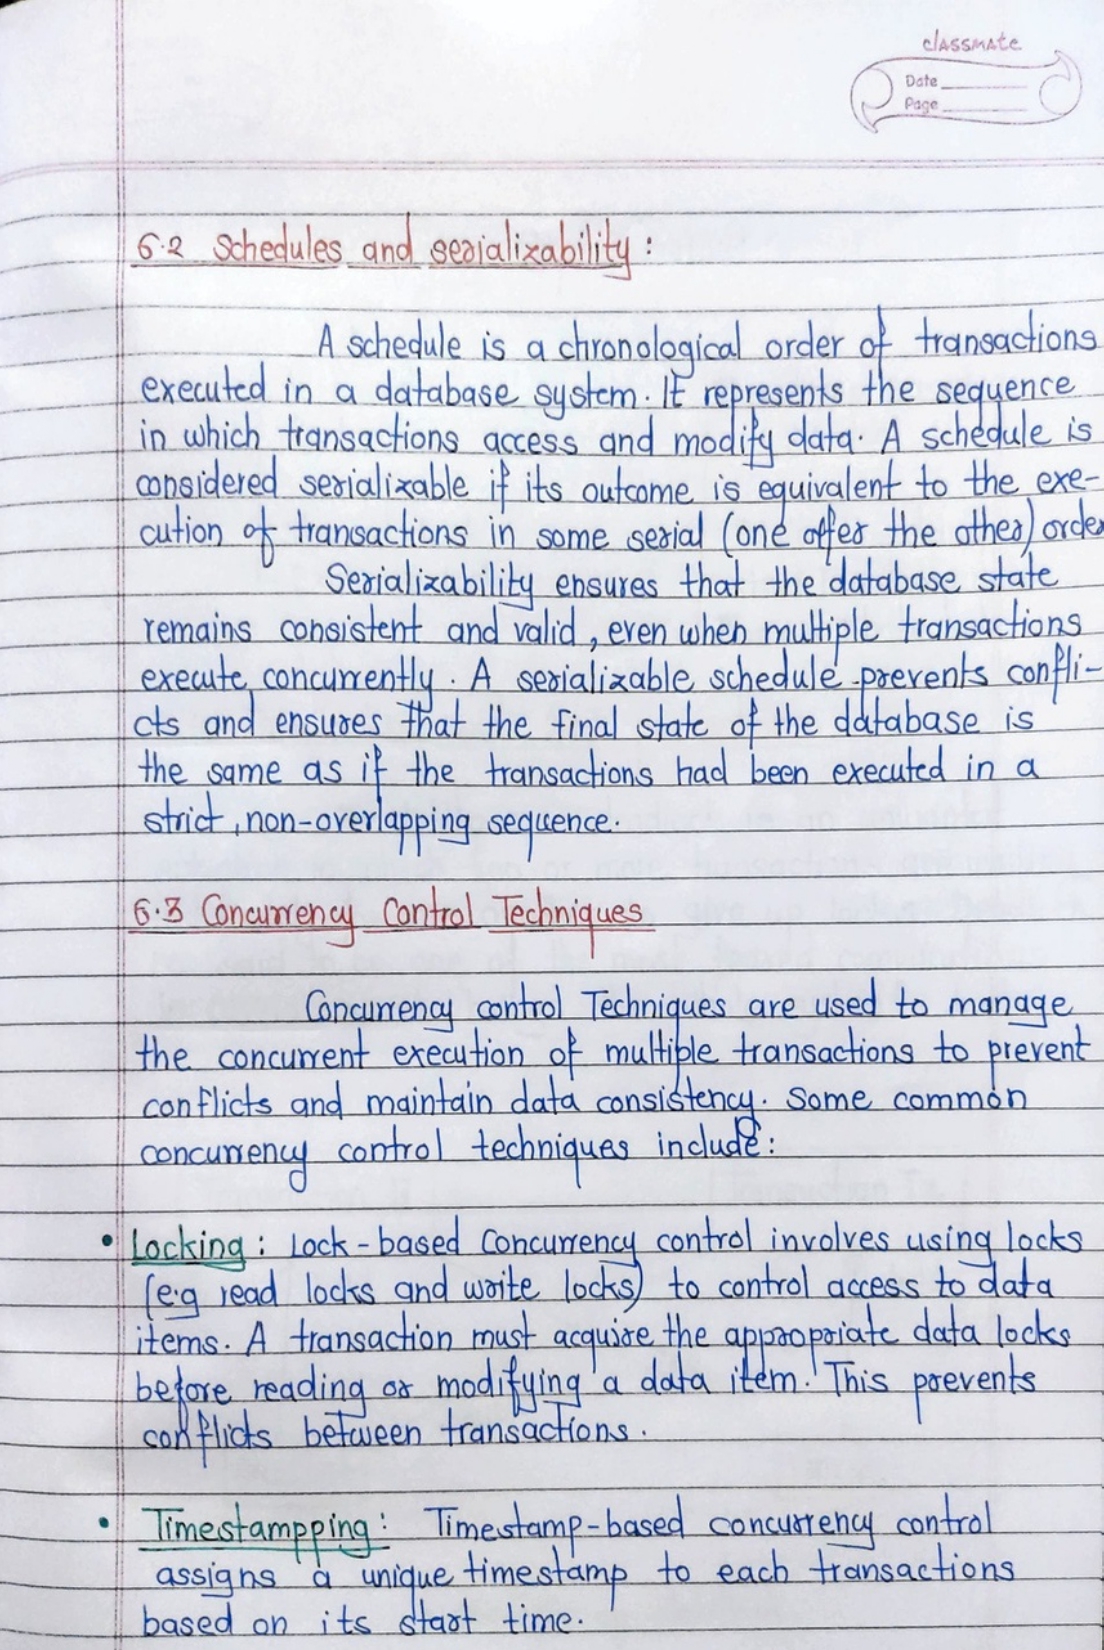 classmate
Date
Page
6.2 Schedules and serializability :
A schedule is a chronological order of transactions
executed in a database system. It represents the sequence
in which transactions access and modify data. A schedule is
considered serializable if its outcome is equivalent to the exe-
cution of transactions in some serial (one after the other) order
Serializability ensures that the database state
remains consistent and valid, even when multiple transactions
execute concurrently. A serializable schedule prevents confli-
cts and ensures that the final state of the database is
the same as if the transactions had been executed in a
strict, non-overlapping sequence.
6.3 Concurrency Control Techniques
Concurrency control Techniques are used to manage
the concurrent execution of multiple transactions to prevent
conflicts and maintain data consistency. Some common
concurrency control techniques include:
• Locking : Lock-based Concurrency control involves using locks
(e.g read locks and write locks) to control access to data
items. A transaction must acquire the appropriate data locks
before reading or modifying a data item. This prevents
conflicts between transactions.
• Timestampping : Timestamp-based concurrency control
assigns a unique timestamp to each transactions
based on its start time.